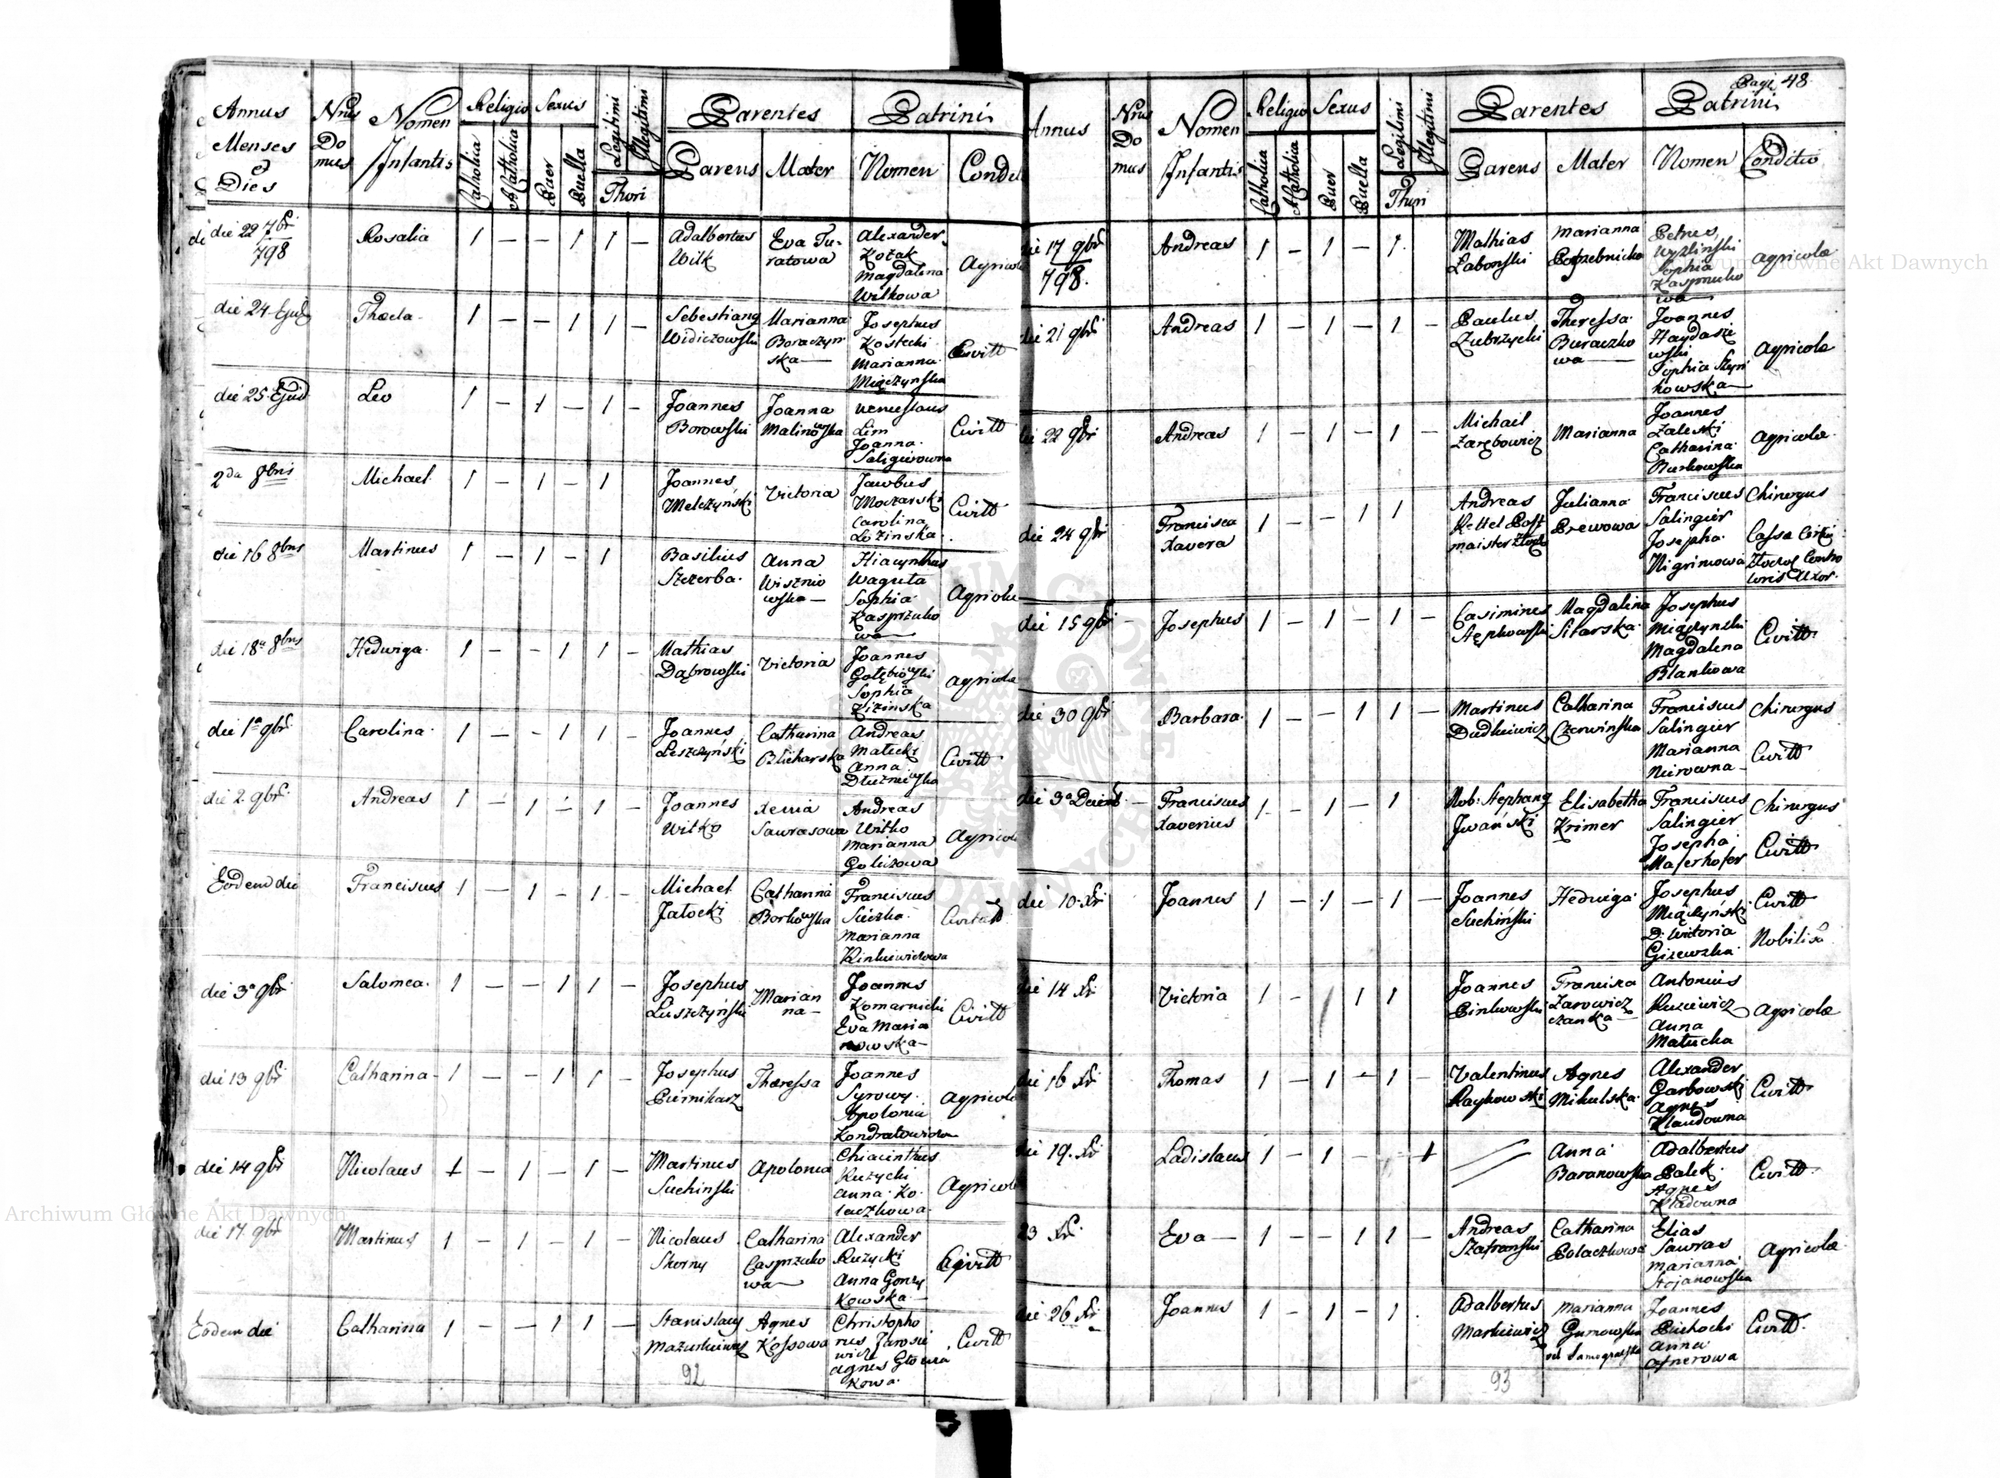 Annus
Menses
et
Dies
Nrus
Do
mus
Nomen
Infantis
Religio
Catholica
Acatholica
Sexus
Puer
Puella
Legitimi
Illegitimi
Thori
Parentes
Parens
Mater
Patrini
Nomen
die 22 7bri
798
Rosalia
1 — — 1 1 —
Adalbertus
Wilk
Eva Tu-
ratowa
Alexander
Kozak
Magdalena
Wilkowa
die 24
1 — — 1 1 —
Marianna
Boraczyn
ska —
Josephus
Kostecki
Marianna
Miączyńska
Civitt
die 25 Ejusd
Leo
1 — 1 — 1 —
Joannes
Borowski
Joanna
Malinowska
Lim
Joanna
Saligierowna
Civitt
2da 8bris
Michael
1 — 1 — 1
Joannes
Melczyński
Victoria
Jacobus
Moczarski
Carolina
Lozinska
Civitt
die 16 8bris
Martinus
1 — 1 — 1
Basilius
Szczerba
Anna
Wisznio
wska —
Hiacynthus
Waguta
Sophia
Kasprzako
wa —
Agricolae
die 18a 8bris
Hedwiga
1 — — 1 1 —
Mathias
Dąbrowski
Victoria
Joannes
Gołębiowski
Sophia
Zizinska
Agricolae
die 1a 9bris
Carolina
1 — — 1 1 —
Joannes
Leszczyński
Catharina
Blicharska
Andreas
Matecki
Anna
Dłużniewska
Civitt
die 2 9bris
Andreas
1 — 1 — 1 —
Joannes
Witko
Xenia
Sawrasowa
Andreas
Witko
Marianna
Golczowa
Eodem die
Franciscus
1 — 1 — 1 —
Michael
Jatocki
Catharina
Borkowska
Franciscus
Sieczka
Marianna
die 3a 9bris
Salomea
1 — — 1 1 —
Josephus
Luszczyński
Marian
na —
Joannes
Komarnicki
Eva Maria
nowska —
Civitt
die 13 9bri
Catharina
1 — — 1 1 —
Josephus
Piernikarz
Theressa
Joannes
Syrowy
Apolonia
Kondratowicza
die 14 9bri
Nicolaus
1 — 1 — 1 —
Martinus
Suchinski
Apolonia
Chiacinthus
Ruzycki
Anna Ko
laczkowa
die 17 9bri
Martinus
1 — 1 — 1 —
Nicolaus
Skorny
Catharina
Casprzako
wa —
Alexander
Ruzycki
Anna Gonzy
kowska
Civitt
Eodem die
Catharina
1 — — 1 1 —
Stanislaus
Agnes
Kossowa
Christopho
rus Jarosie
wicz
Agnes Głowa
kowa
Civitt
92
Pag. 48
Annus
Nrus
Do
mus
Nomen
Infantis
Religio
Catholica
Acatholica
Sexus
Puer
Puella
Legitimi
Illegitimi
Thori
Parentes
Parens
Mater
Patrini
Nomen
Conditio
die 17 9bri
798.
Andreas
1 — 1 — 1
Mathias
Laborski
Marianna
Petrus
Wyzlinski
Sophia
Kasprzuko
wa —
Agricolae
die 21 9bri
Andreas
1 — 1 — 1 —
Paulus
Zubrzycki
Theressa
Buraczko
wa —
Joannes
Haydasz
wski
Sophia Szyn
kowska —
Agricolae
die 22 9bri
Andreas
1 — 1 — 1 —
Michael
Zarębowicz
Marianna
Joannes
Zaleski
Catharina
Burkowska
Agricolae
die 24 9bri
Francisca
Xavera
1 — — 1 1
Andreas
Kettel Post
maister
Julianna
Brewowa
Franciscus
Salingier
Josepha
Nigrinowa
Chirurgus
die 15 9bri
Josephus
1 — 1 — 1 —
Casimirus
Magdalina
Sitarska
Josephus
Miączynski
Magdalena
Blankowa
Civitt
die 30 9bri
Barbara
1 — — 1 1 —
Martinus
Dudkiewicz
Catharina
Czerwińska
Franciscus
Salingier
Marianna
Neirowna
Chirurgus
Civitt
die 3a Decemb.
Franciscus
Xaverius
1 — 1 — 1
Nob: Stephang
Jwański
Elisabetha
Krimer
Franciscus
Salingier
Josepha
Maserhofer
Chirurgus
Civitt
die 10 Xbri
Joannes
1 — 1 — 1 —
Joannes
Suchiński
Hedwiga
Josephus
Miączyński
D. Wiktoria
Gizewska
Civitt
Nobilis
die 14 Xbri
Victoria
1 — 1 1 1
Joannes
Pinkowski
Francisca
Zarowicz
czanka —
Antonius
Kuscewicz
Anna
Matucha
Agricolae
die 16 Xbri
Thomas
1 — 1 — 1 —
Valentinus
Raykowski
Agnes
Mikulska
Alexander
Garbowski
Agnes
Klaudowna
Civitt
die 19 Xbri
Ladislaus
1 — 1 — 1
Anna
Baranowska
Adalbertus
Palek
Agnes
Kladowna
Civitt
23 Xbri
Eva —
1 — — 1 1 —
Andreas
Szafranski
Catharina
Polaczkowa
Elias
Sawras
Marianna
Stojanowska
Agricolae
die 26 Xbri
Joannes
1 — 1 — 1
Adalbertus
Markiewicz
Marianna
Gurnowska
Joannes
Piechocki
Anna
Afnerowa
Civitt
93
Archiwum Główne Akt Dawnych
Archiwum Główne Akt Dawnych
ARCHIWUM GŁÓWNE AKT DAWNYCH